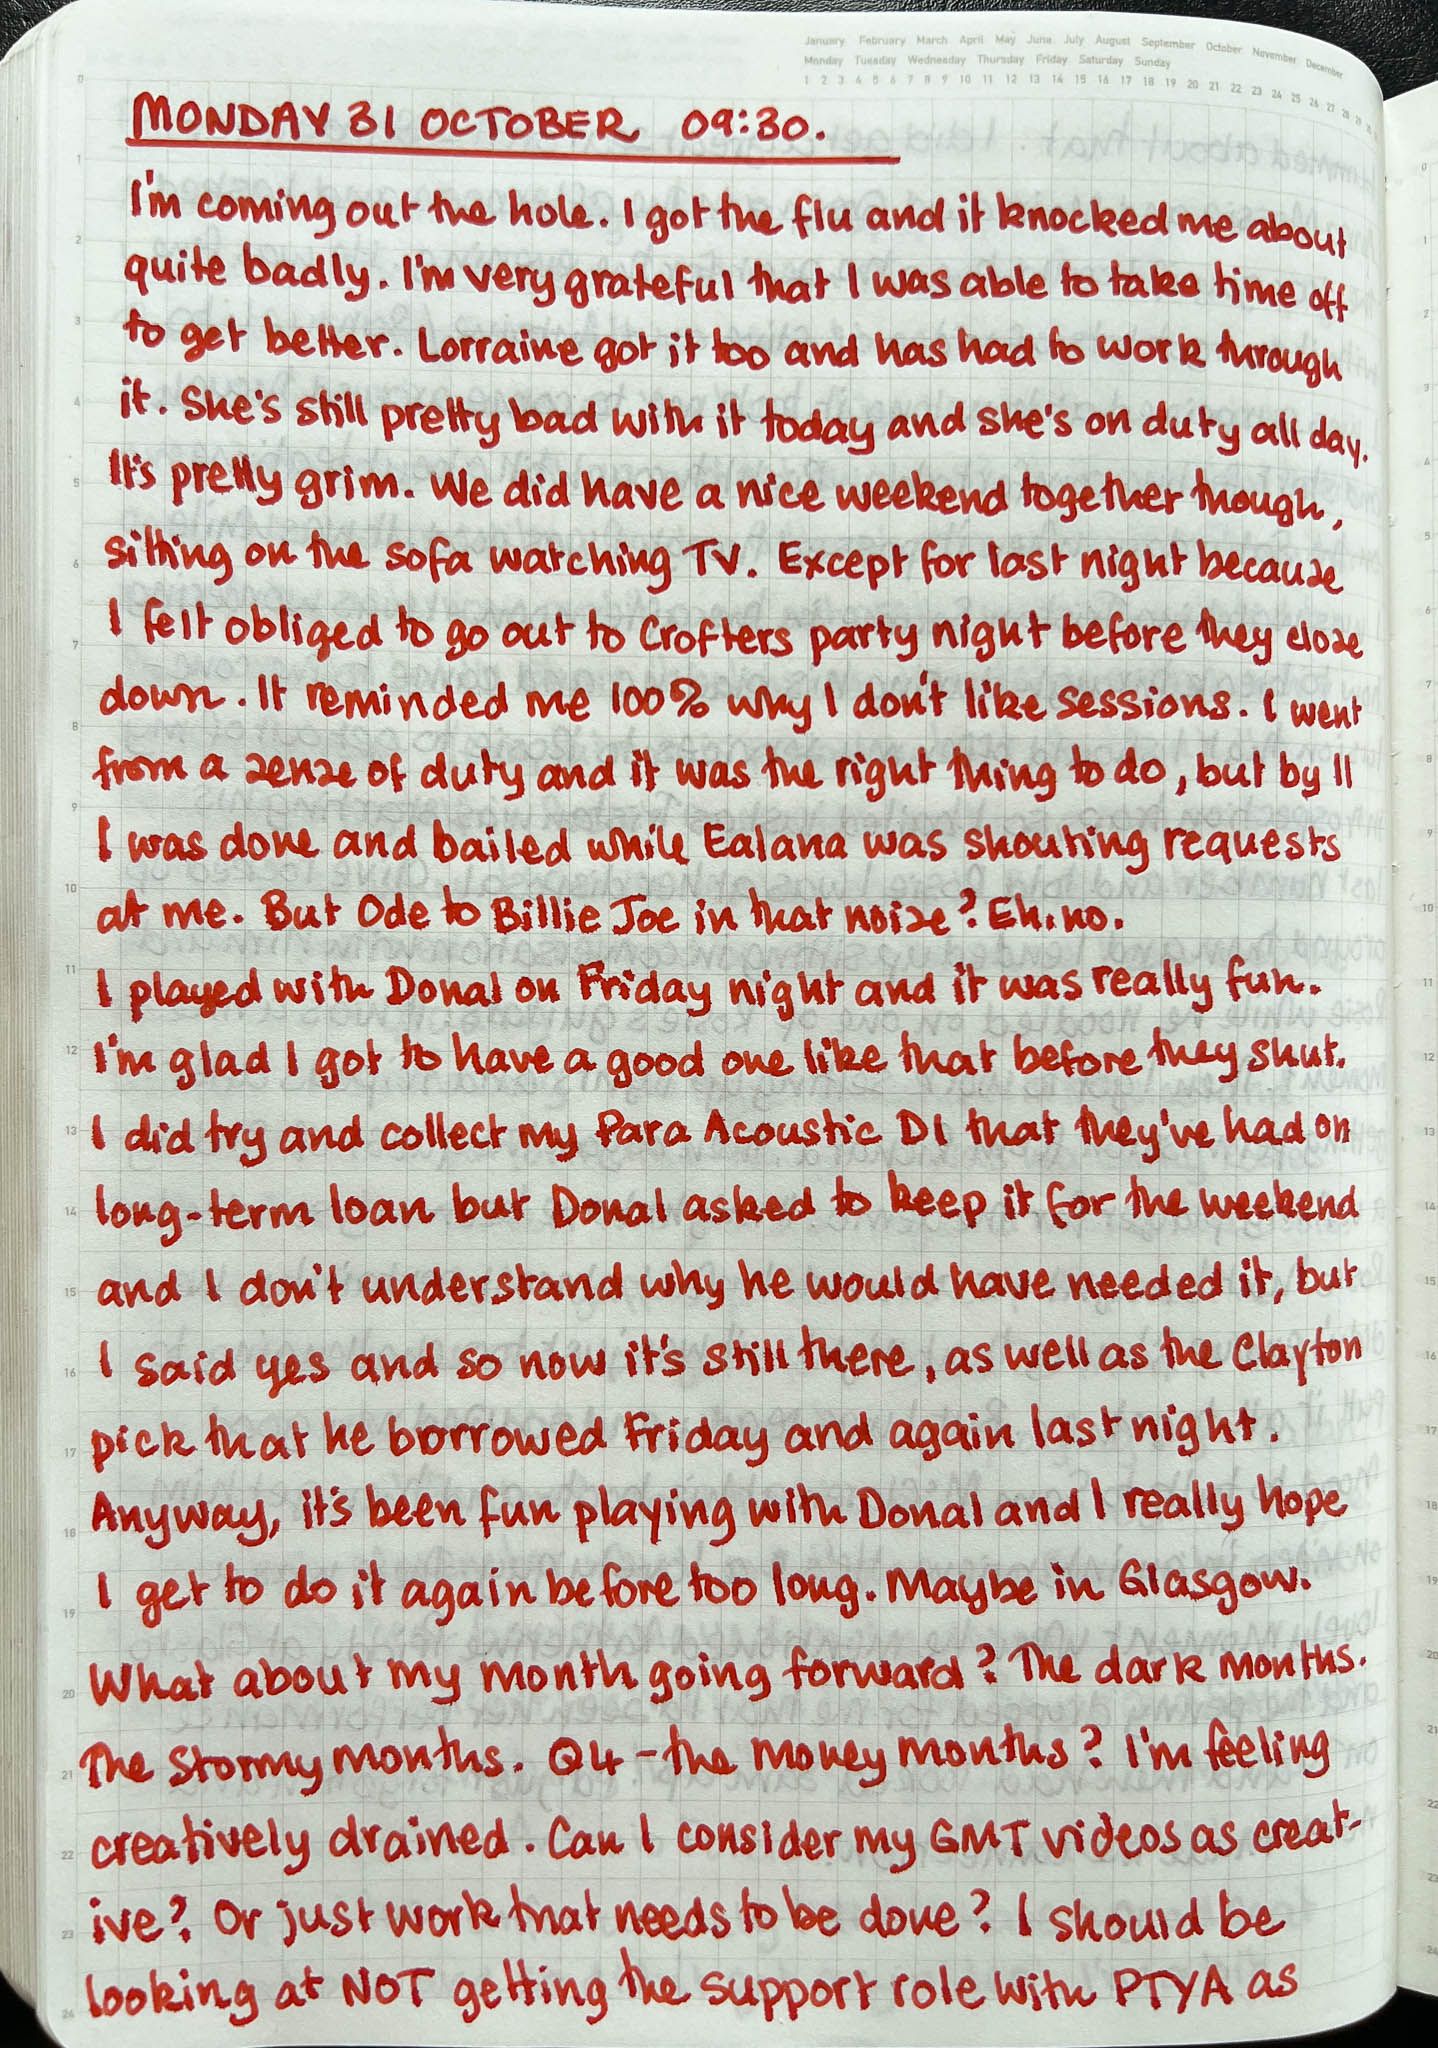 January February March April May June July August September October November December
Monday Tuesday Wednesday Thursday Friday Saturday Sunday
1 2 3 4 5 6 7 8 9 10 11 12 13 14 15 16 17 18 19 20 21 22 23 24 25 26 27 28 29 30 31
MONDAY 31 OCTOBER 09:30.
I'm coming out the hole. I got the flu and it knocked me about
quite badly. I'm very grateful that I was able to take time off
to get better. Lorraine got it too and has had to work through
it. She's still pretty bad with it today and she's on duty all day.
It's pretty grim. We did have a nice weekend together though,
sitting on the sofa watching TV. Except for last night because
I felt obliged to go out to Crofters party night before they close
down. It reminded me 100% why I don't like sessions. I went
from a sense of duty and it was the right thing to do, but by 11
I was done and bailed while Ealana was shouting requests
at me. But Ode to Billie Joe in that noise? Eh. no.
I played with Donal on Friday night and it was really fun.
I'm glad I got to have a good one like that before they shut.
I did try and collect my Para Acoustic DI that they've had on
long-term loan but Donal asked to keep it for the weekend
and I don't understand why he would have needed it, but
I said yes and so now it's still there, as well as the Clayton
pick that he borrowed Friday and again last night.
Anyway, it's been fun playing with Donal and I really hope
I get to do it again before too long. Maybe in Glasgow.
What about my month going forward? The dark months.
The Stormy months. Q4 - the money months? I'm feeling
creatively drained. Can I consider my GMT videos as creat-
ive? Or just work that needs to be done? I should be
looking at NOT getting the support role with PTYA as